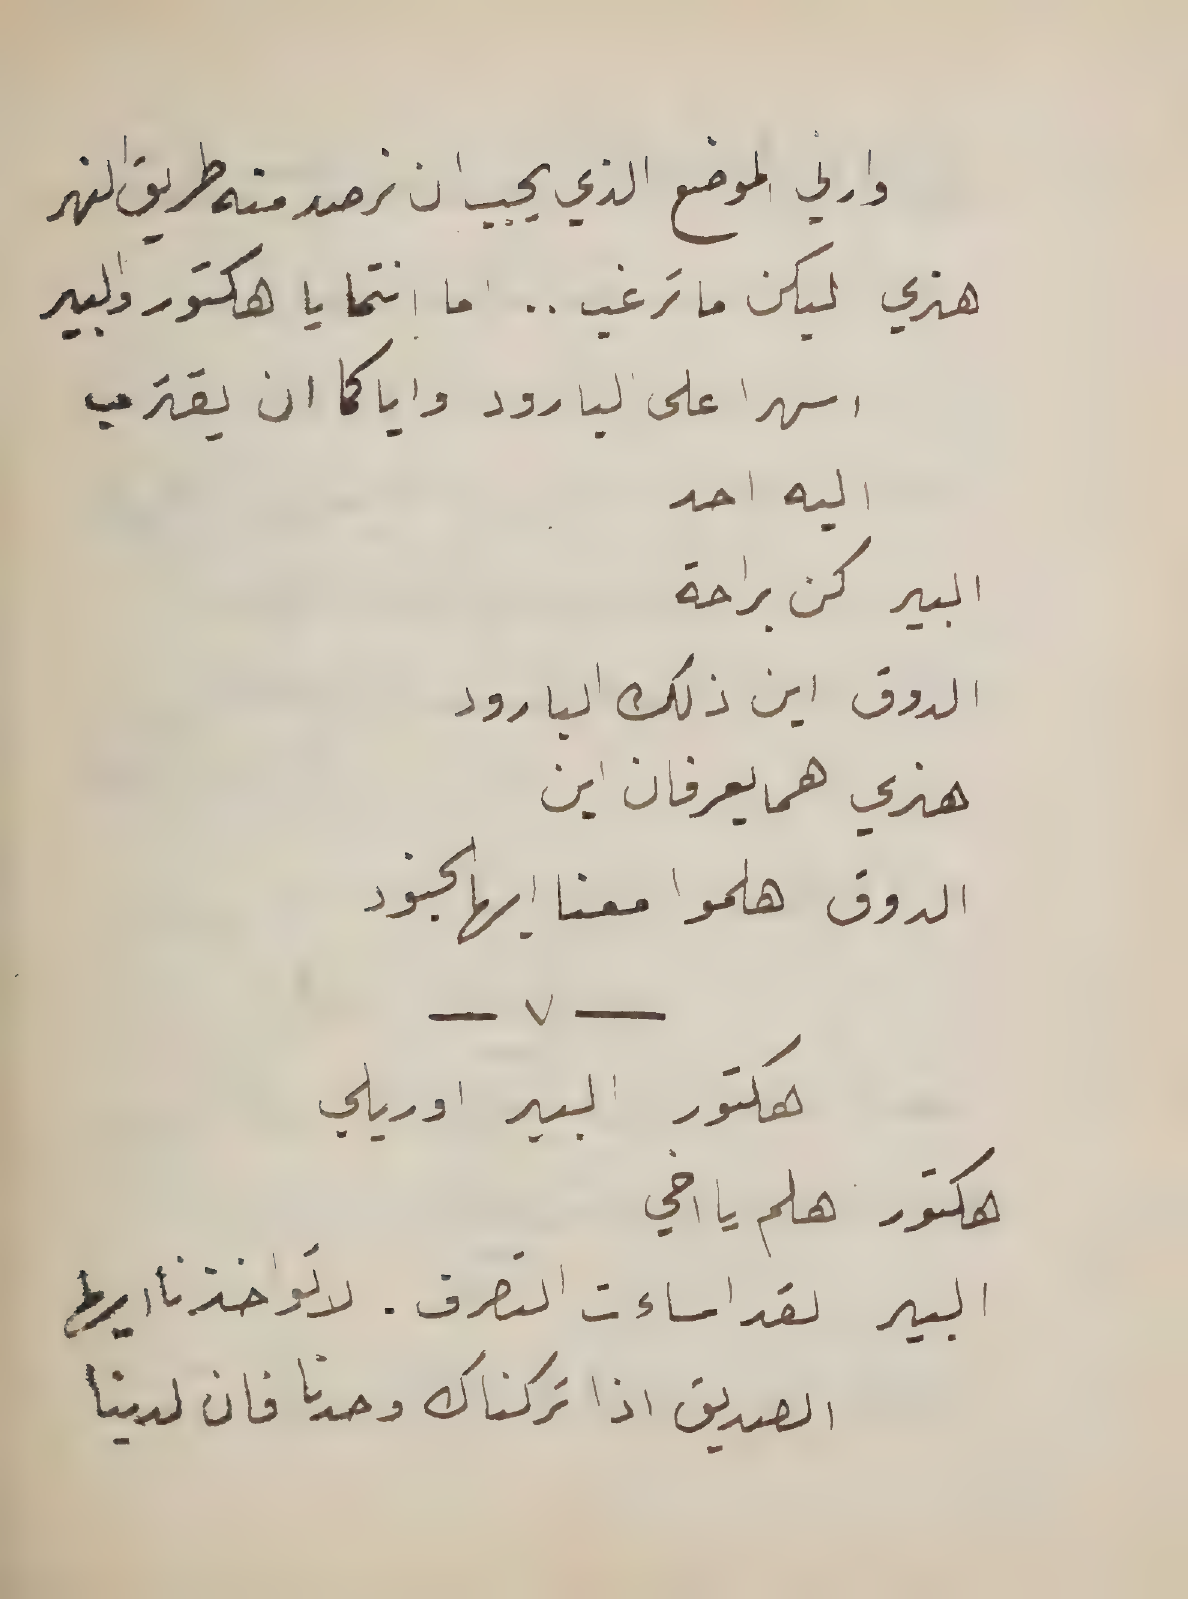 وارني الموضع الذي يجيب ان نرصد منه طريق النهر
هنري ليكن ما ترغب .. اما انتما يا هكتور والبير
اسهرا على البارود واياكما ان يقترب
اليه احد
البير كن براحة
الدوق اين ذلك البارود
هنري هما يعرفان اين
الدوق هلموا معنا ايها الجنود
— ٧ —
هكتور البير اوريلي
هكتور هلم يا اخي
البير لقد اساءت التصرف . لا تواخذنا ايها
الصديق اذا تركناك وحدنا فان لدينا